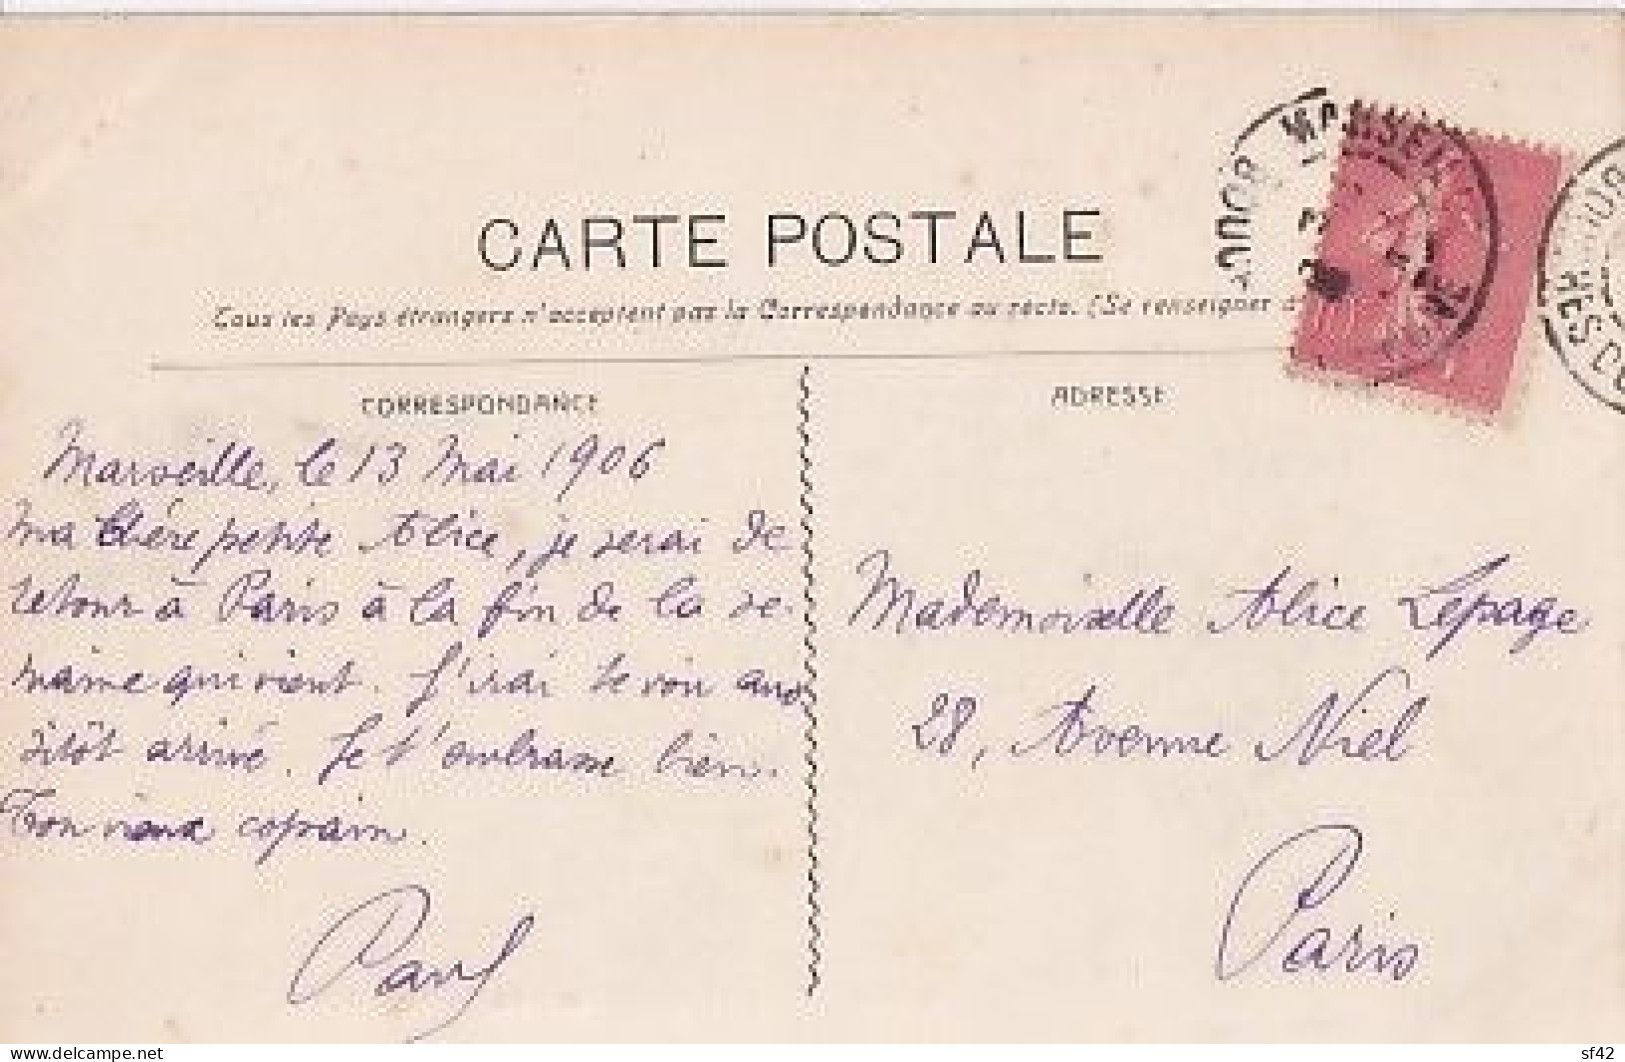 CARTE POSTALE
Tous les Pays étrangers n'acceptent pas la Correspondance au recto. (Se renseigner à
CORRESPONDANCE
Marseille, le 13 Mai 1906
Ma chère petite Alice, je serai de
retour à Paris à la fin de la se-
maine qui vient. J'irai te voir aus
sitôt arrivé. Je t'embrasse bien.
Ton vieux copain.
Paul
ADRESSE
Mademoiselle Alice Lepage
28, Avenue Niel
Paris
MARSEILLE
RHONE
BOUCHES DU
www.delcampe.net
sf42